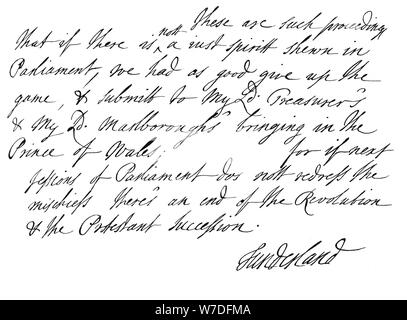 These are such proceeding
that if there is nott a just spiritt shewn in
Parliament, we had as good give up the
game, & submitt to My Ld. Treasurer's
& My Ld. Marlborough's bringing in the
Prince of Wales; for if next
sessions of Parliament doe nott redress the
mischiefs there's an end of the Revolution
& the Protestant succession.
Sunderland
alamy
Image ID: W7DFMA
www.alamy.com